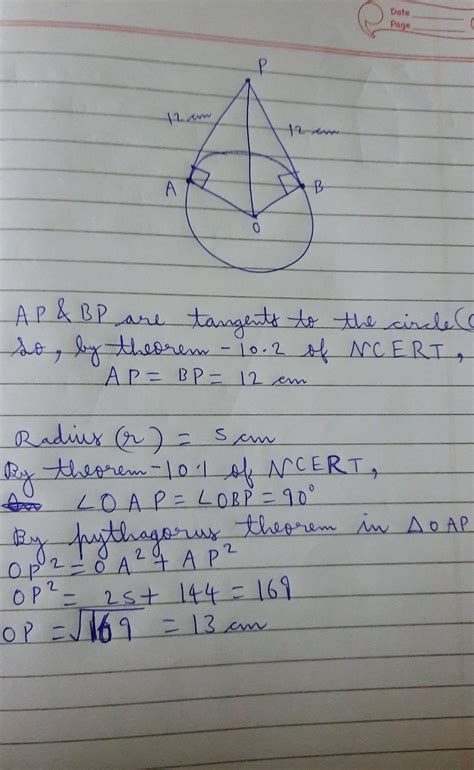 Date
Page
P
12 cm
12 cm
A
B
O
AP & BP are tangents to the circle (
So, by theorem - 10.2 of NCERT,
AP = BP = 12 cm
Radius (r) = 5 cm
By theorem - 10.1 of NCERT,
∠OAP = ∠OBP = 90°
By pythagorus theorem in △OAP
OP² = OA² + AP²
OP² = 25 + 144 = 169
OP = √169 = 13 cm